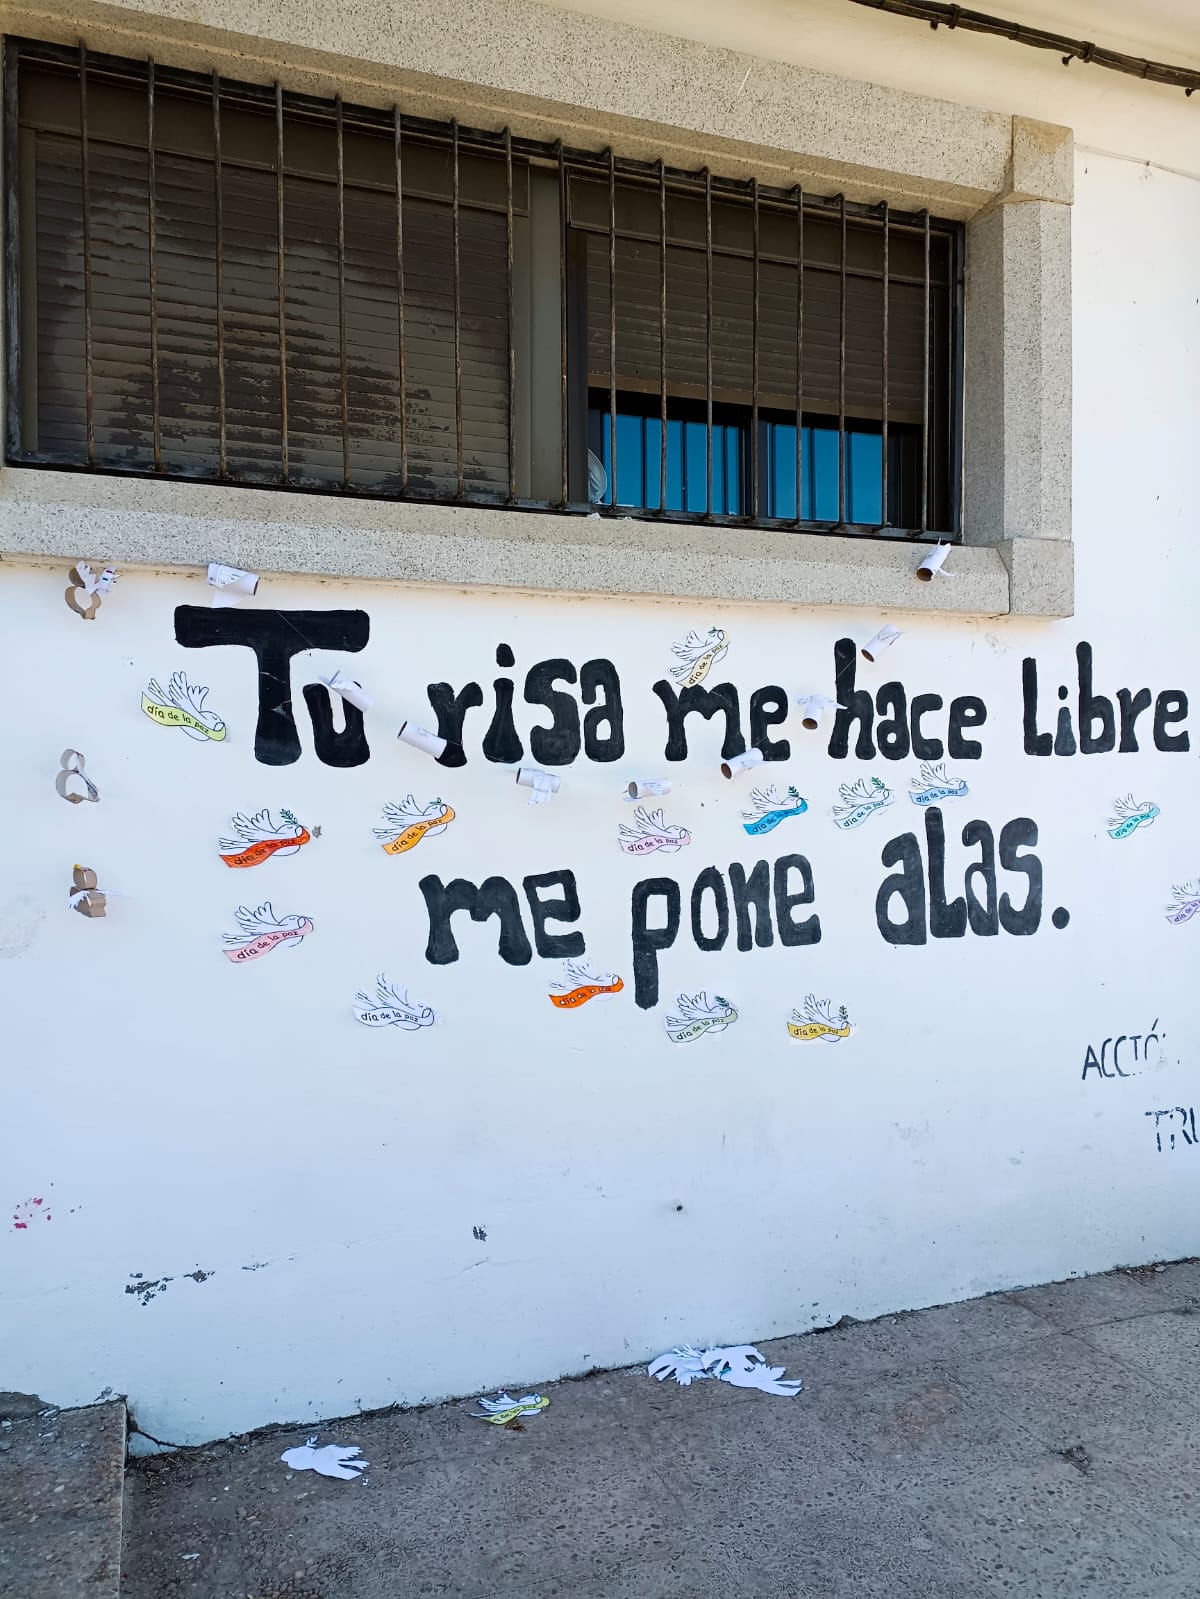 Tu risa me hace Libre,
me pone aLas.
día de la paz
día de la paz
día de la paz
día de la paz
día de la paz
día de la paz
día de la paz
día de la paz
día de la paz
día de la paz
día de la paz
día de la paz
día de la paz
día de la paz
día de la paz
ACCIÓ
TRI